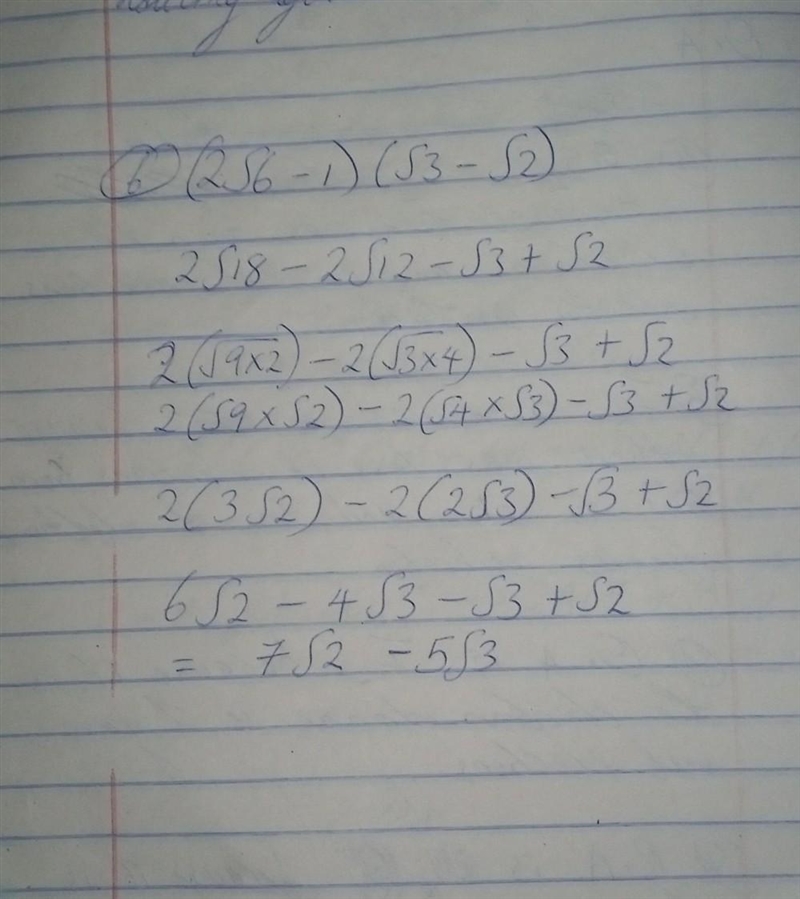 (2√6 - 1) (√3 - √2)
2√18 - 2√12 - √3 + √2
2(√9×2) - 2(√3×4) - √3 + √2
2(√9 × √2) - 2(√4 × √3) - √3 + √2
2(3√2) - 2(2√3) - √3 + √2
6√2 - 4√3 - √3 + √2
= 7√2 - 5√3